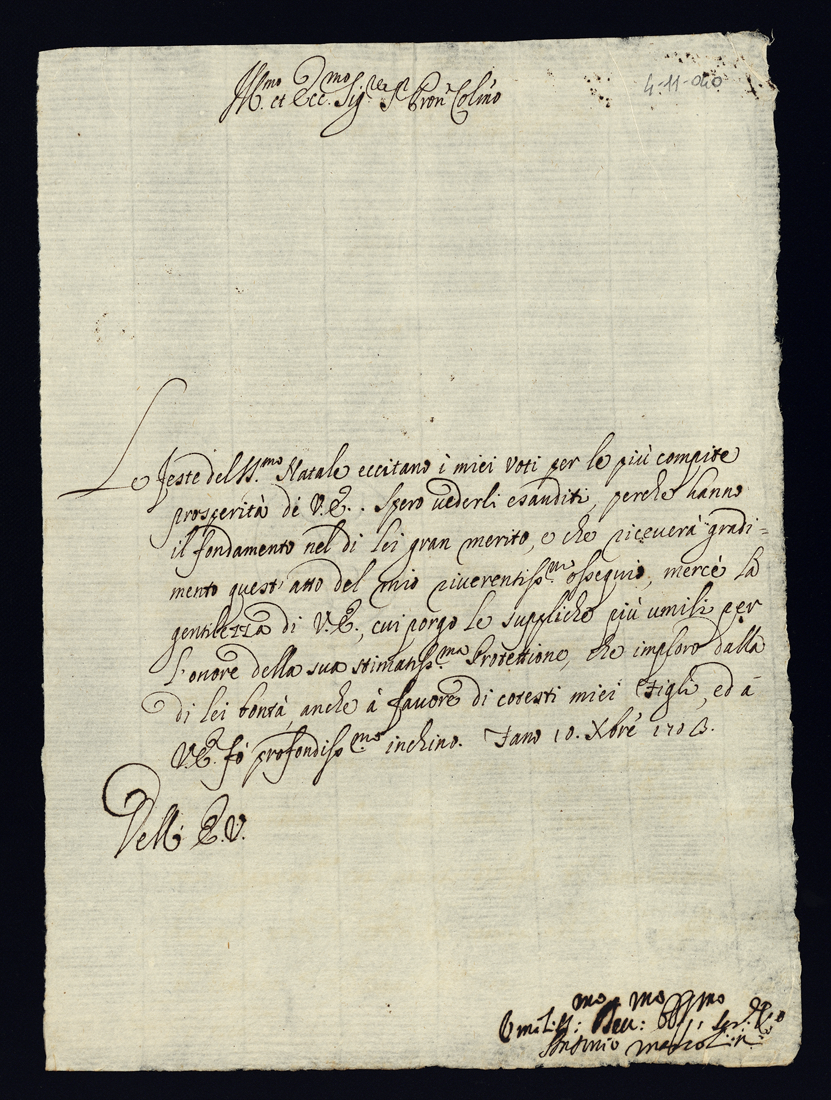 Ill.mo et Ecc.mo Sig.re Sig.r Pron Colmo
4-11-040
Le feste del SS.mo Natale eccitano i miei voti per le più compite
prosperità dè V.E. . Spero vederli esauditi, perche hanno
il fondamento nel di lei gran merito, e che riceverà gradi=
mento quest'atto del mio riverentiss.mo ossequio, mercè la
gentilezza di V.E., cui porgo le suppliche più umili per
l'onore della sua stimatiss.ma Protettione, che imploro dalla
di lei bontà, anche à favore di cotesti miei Figli, ed à
V.E. fò profondiss.mo inchino. Fano 10. Xbre 1703.
Dell' E.V.
Umiliss:mo Dev:mo Obblmo Ser.re
Antonio